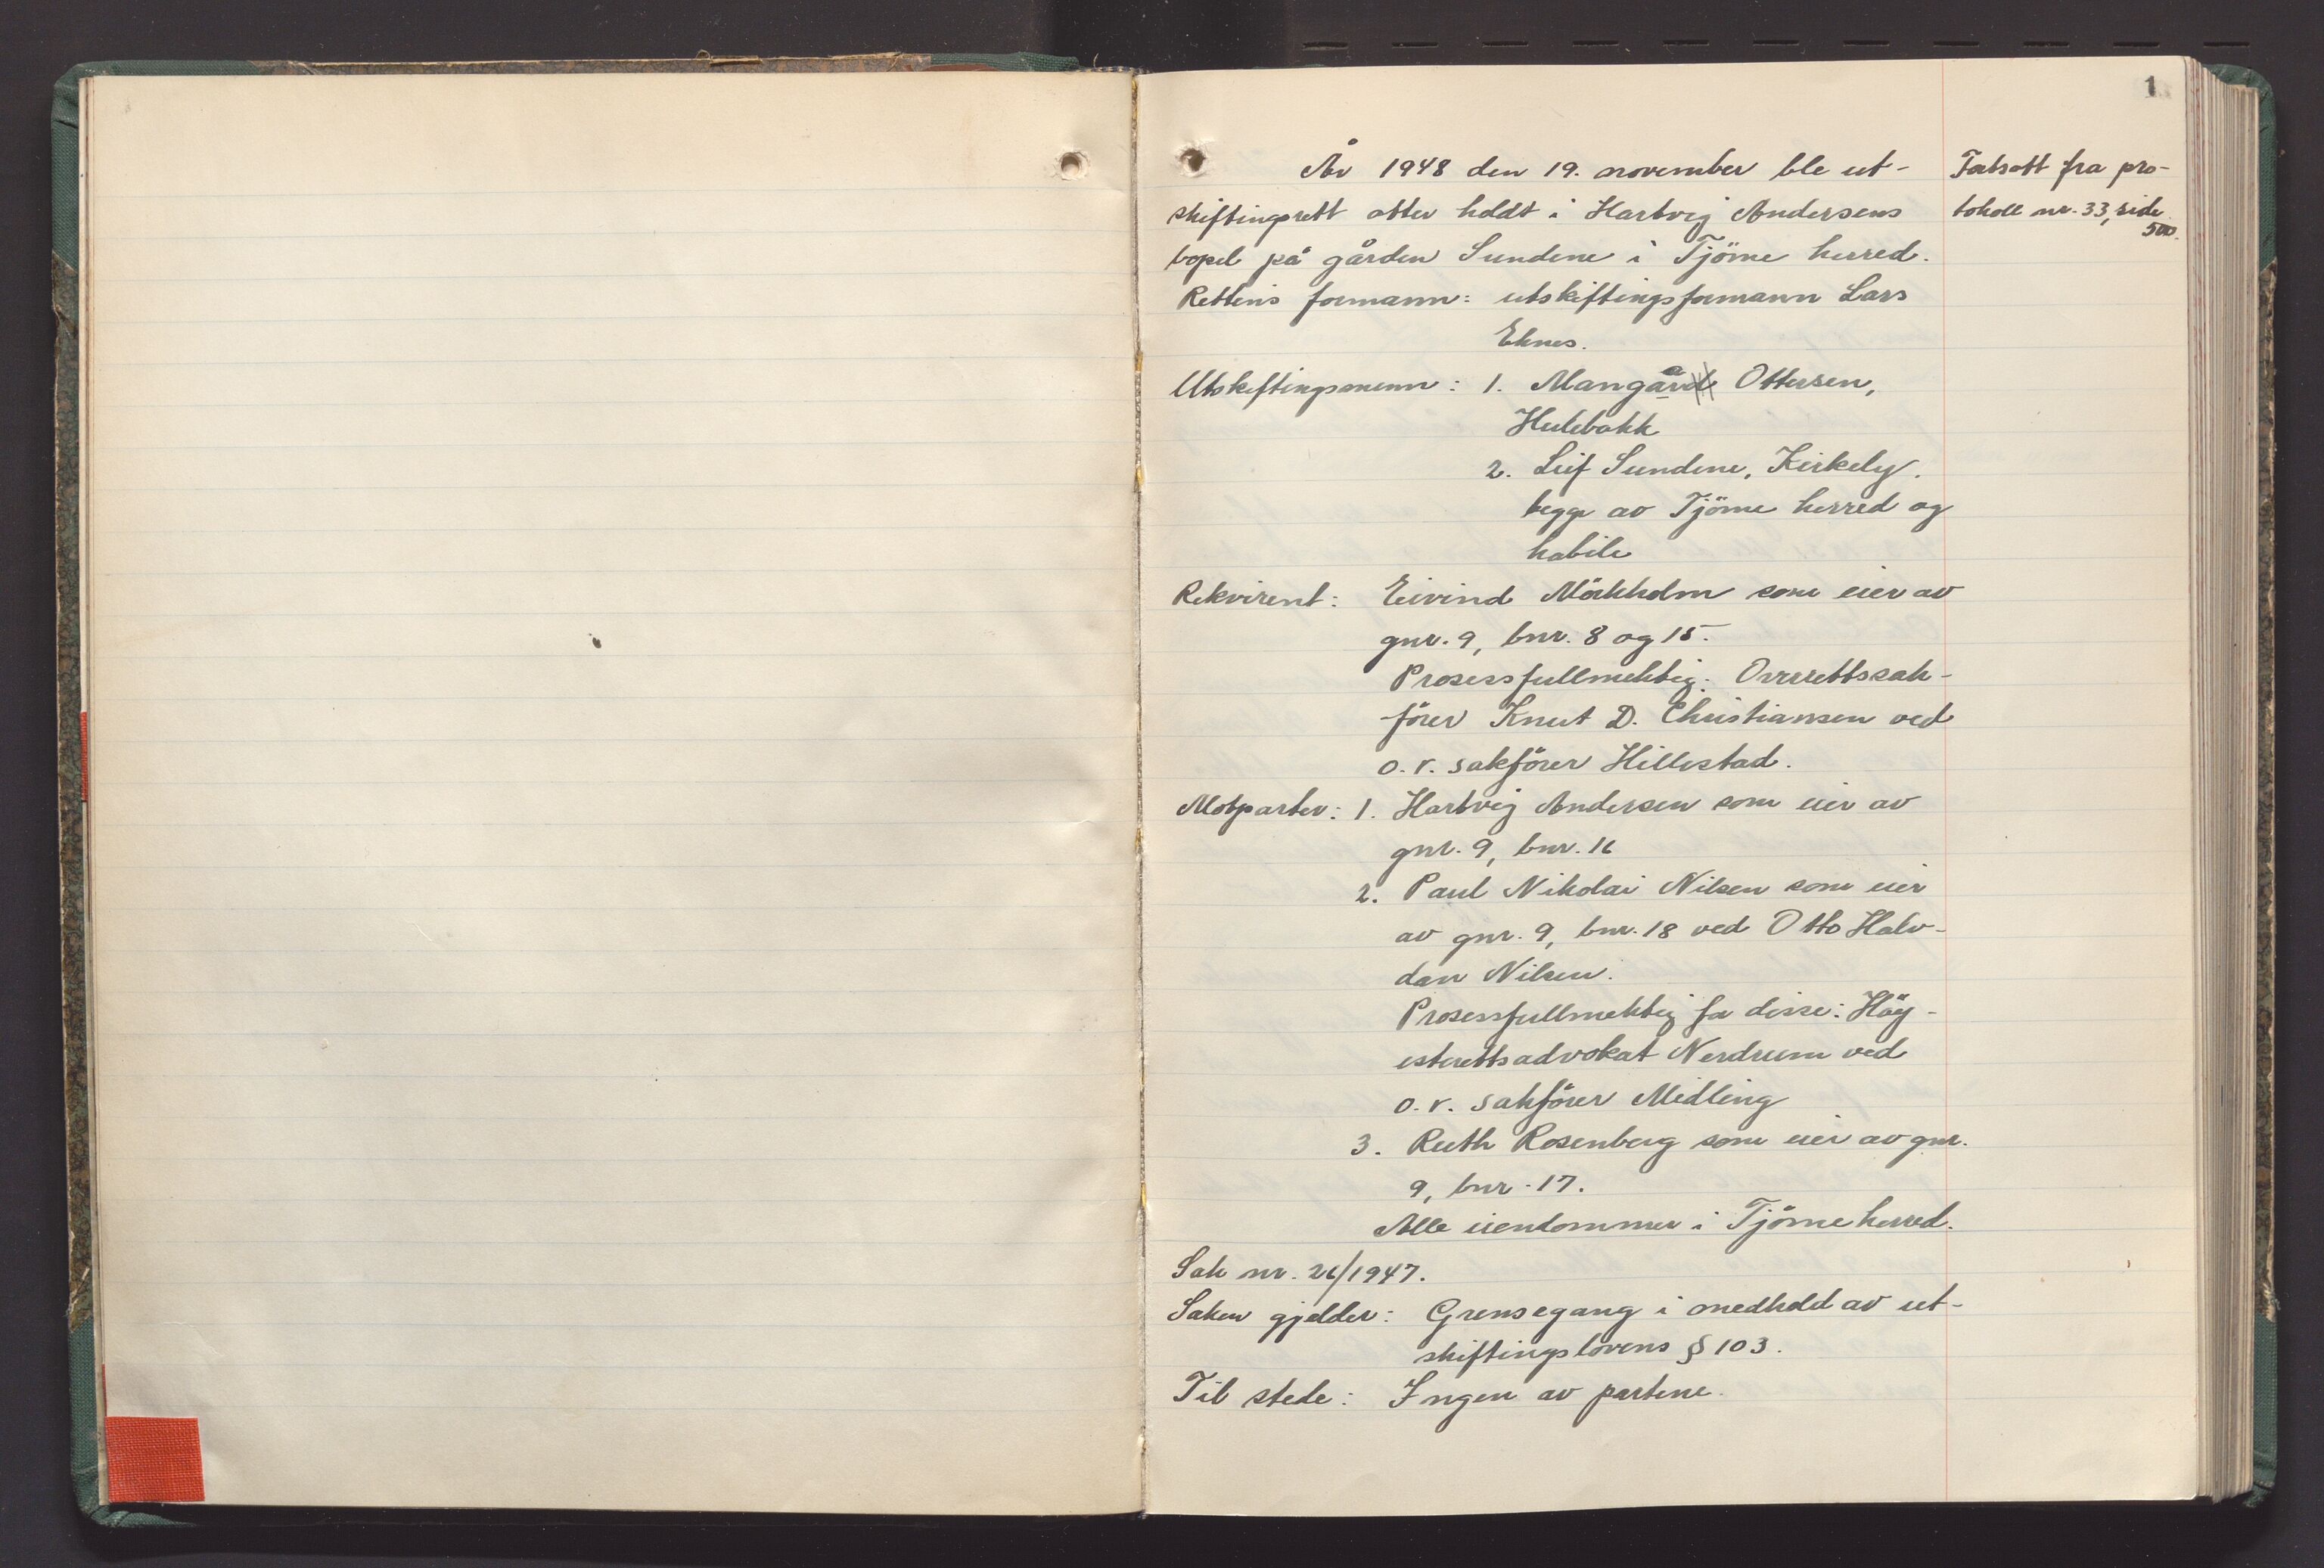 1
År 1948 den 19. november ble ut-
skiftingsrett atter holdt i Hartvig Andersens
bopel på gården Sundene i Tjöme herred.
Rettens formann: utskiftingsformann Lars
Eknes.
Utskiftingsmenn: 1. Mangård Ottersen,
Hulebakk
2. Leif Sundene, Kirkely.
begge av Tjöme herred og
habile
Rekvirent: Eivind Mörkholm som eier av
gnr. 9, bnr. 8 og 15.
Prosessfullmektig: Overrettssak-
förer Knut D. Christiansen ved
o.r. sakförer Hillestad.
Motparter: 1. Hartvig Andersen som eier av
gnr. 9, bnr. 16
2. Paul Nikolai Nilsen som eier
av gnr. 9, bnr. 18 ved Otto Halv-
dan Nilsen.
Prosessfullmektig for disse: Höy-
esterettsadvokat Nerdrum ved
o.r. sakförer Midling
3. Ruth Rosenberg som eier av gnr.
9, bnr. 17.
Alle eiendommer i Tjöme herred.
Sak nr. 26/1947.
Saken gjelder: Grensegang i medhold av ut-
skiftingslovens § 103.
Til stede: Ingen av partene.
Fortsatt fra pro-
tokoll nr. 33, side
500.